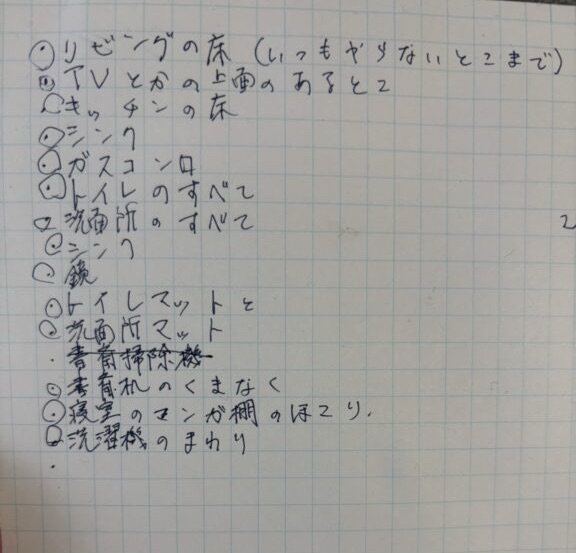 リビングの床 (いつもやらないとこまで)
TVとかの上面のあるとこ
キッチンの床
シンク
ガスコンロ
トイレのすべて
洗面所のすべて
シンク
鏡
トイレマットと
洗面所マット
掃除機
机のくまなく
寝室のマンガ棚のほこり.
洗濯機のまわり